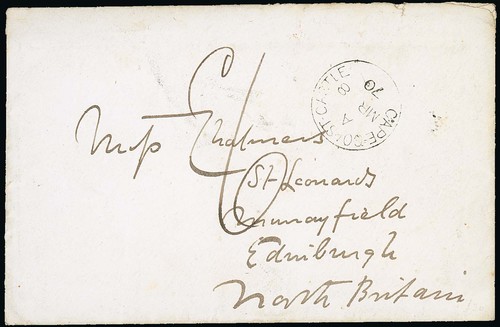 CAPE-COAST-CASTLE
A
MR 8
70
6
Miss Chalmers
St Leonards
Murrayfield
Edinburgh
North Britain